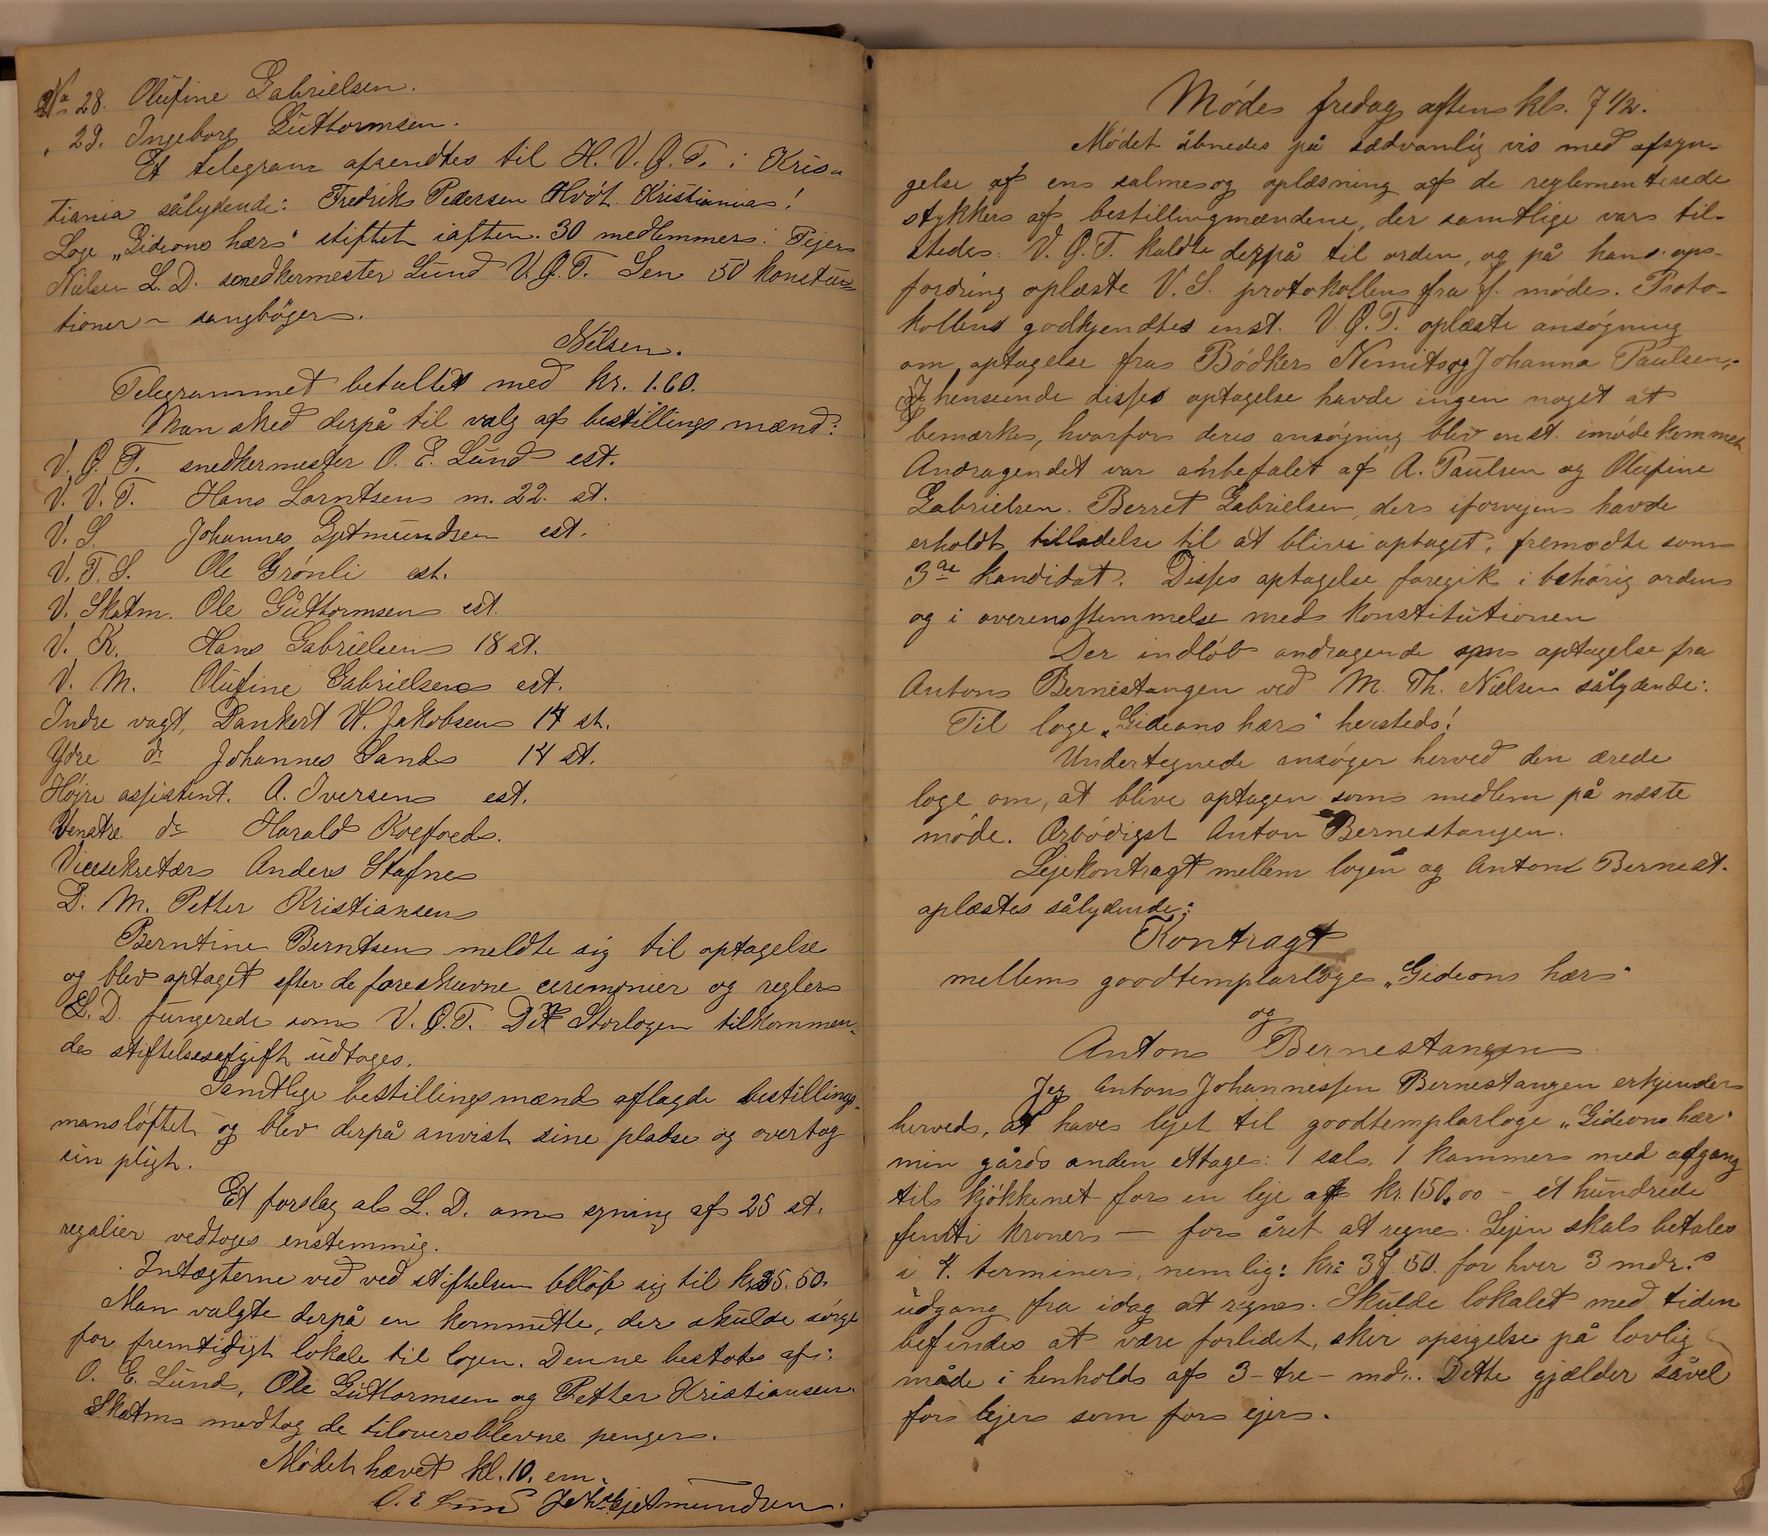 No 28. Olufine Gabrielsen.
" 29. Ingeborg Guttormsen.
Et telegram afsendtes til H. V. Q. T. i Kris-
tiania sålydende: Fredrik Pedersen Hvdt. Kristiania!
Loge „Gideons hær" stiftet iaften. 30 medlemmer. Pejer
Nielsen L. D. snedkermester Lund V. Q. T. Sen 50 konstitu-
tioner – sangbøger.
Nilsen.
Telegrammet betaltes med kr. 1.60.
Man sked derpå til valg af bestillingsmænd:
V. Q. T. snedkermester O. E. Lund est.
V. V. T. Hans Larntsen m. 22 st.
V. S. Johannes Gjetmundsen est.
V. F. S. Ole Grønli est.
V. Skatm. Ole Guttormsen est.
V. K. Hans Gabrielsen 18 st.
V. M. Olufine Gabrielsen est.
Indre vagt, Dankert W. Jakobsen 14 st.
Ydre do Johannes Sand 14 st.
Højre assistent. A. Iversen est.
Venstre do Harald Koefoed.
Vicesekretær Anders Stafne
D. M. Petter Kristiansen
Berntine Berntsen meldte sig til optagelse
og blev optaget efter de foreskrevne ceremonier og regler
L. D. fungerede som V. Q. T. Det Storlogen tilkommen-
de stiftelsesafgift udtoges.
Samtlige bestillingsmænd aflagde bestillings-
mansløftet og blev derpå anvist sine pladse og overtog
sin pligt.
Et forslag ab L. D. om syning af 25 st.
regalier vedtoges enstemmig.
Intægterne ved ved stiftelsen beløb sig til kr. 35.50.
Man valgte derpå en kommitte, der skulde sørge
for fremtidigt lokale til logen. Denne bestod af:
O. E. Lund, Ole Guttormsen og Petter Kristiansen.
Skatm modtog de tiloversblevne penger.
Mødet hævet kl. 10. em.
O. E Lund Joh. Gjetmundsen.
Møde fredag aften kl. 7 1/2.
Mødet åbnedes på sædvanlig vis med afsyn-
gelse af en salme og oplæsning af de reglementerede
stykker af bestillingmændene, der samtlige var til-
stede. V. Q. T. kaldte derpå til orden, og på hans op-
fordring oplæste V. S. protokollen fra f. møde. Proto-
kollen godkjendtes enst. V. Q. T. oplæste ansøgning
om optagelse fra Bødker Nemitz og Johanna Paulsen,
I henseende disses optagelse havde ingen noget at
bemærke, hvorfor deres ansøgning blev enst. imødekommet.
Andragendet var anbefalet af A. Paulsen og Olufine
Gabrielsen. Berret Gabrielsen, der iforvejen havde
erholdt tilladelse til at blive optaget, fremødte som
3de kandidat. Disses optagelse foregik i behørig orden
og i overensstemmelse med konstitutionen
Der indløb andragende om optagelse fra
Anton Bernestangen ved M. Th. Nielsen sålydende:
Til loge „Gideons hær" hersteds!
Undertegnede ansøger herved den ærede
loge om, at blive optagen som medlem på næste
møde. Ærbødigst Anton Bernestangen.
Lejekontragt mellem logen og Anton Bernest.
oplæstes sålydende:
Kontragt
mellem goodtemplarloge „Gideons hær"
og
Anton Bernestangen
Jeg Anton Johannessen Bernestangen erkjender
herved, at have lejet til goodtemplarloge „Gideons hær"
min gårds anden ettage: 1 sal, 1 kammer med adgang
til kjøkkenet for en leje af kr. 150.00 – et hundrede
femti kroner — for året at regne. Lejen skal betales
i 4. terminer, nemlig: kr: 37.50. for hver 3 mdr.s
udgang fra idag at regne. Skulde lokalet med tiden
befindes at være forlidet, sker opsigelse på lovlig
måde i henhold af 3 – tre – mdr. Dette gjælder såvel
for lejer som for ejer.